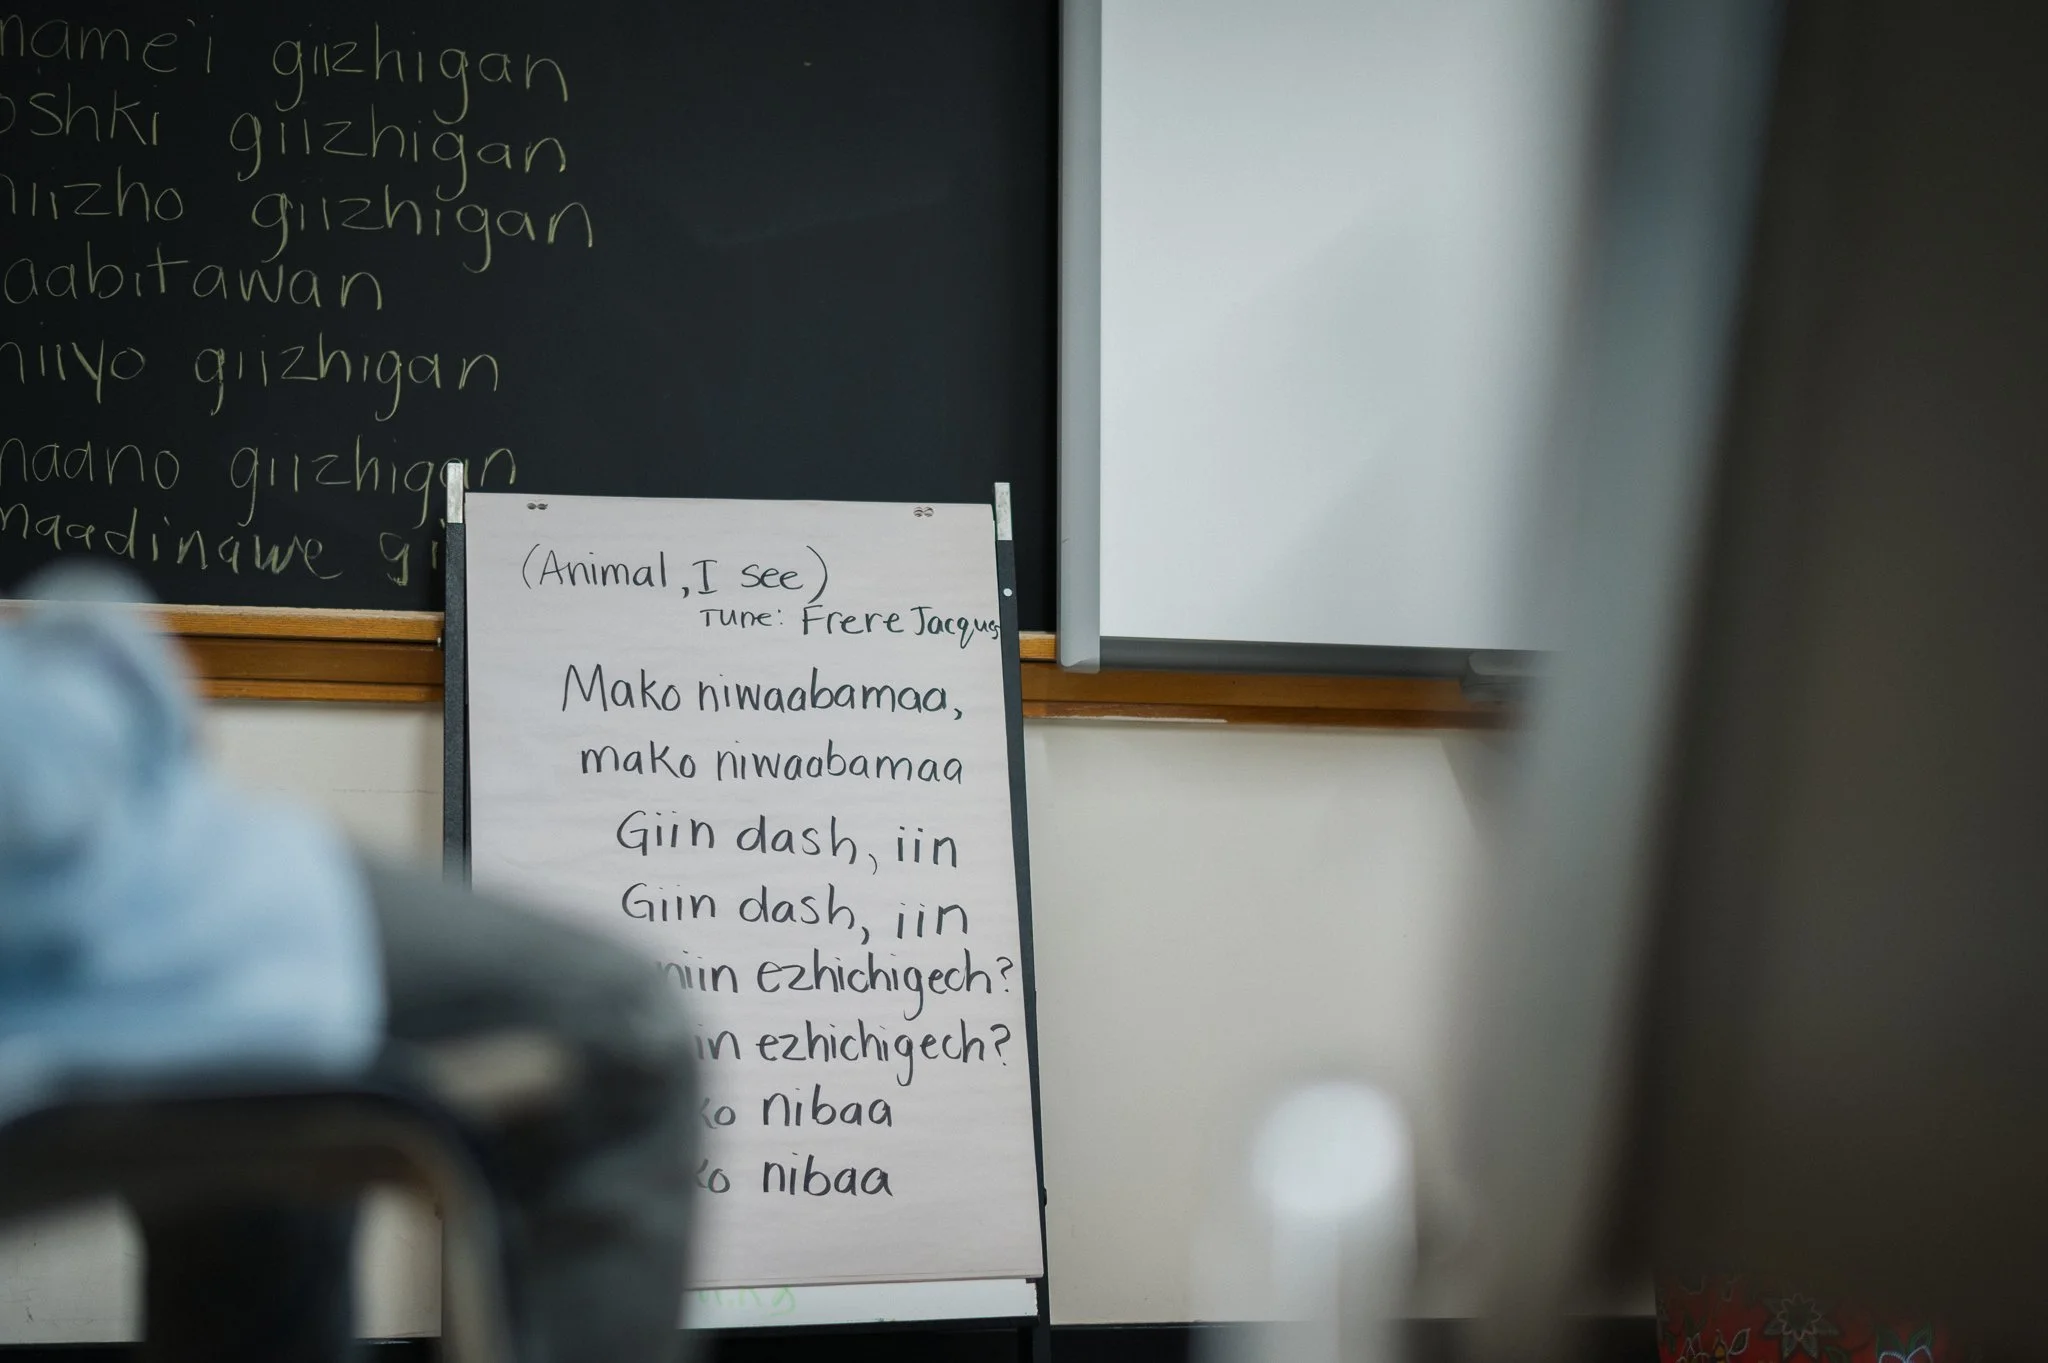 name'i giizhigan
oshki giizhigan
niizho giizhigan
aabitawan
niiyo giizhigan
naano giizhigan
maadinawe
(Animal, I see)
Tune: Frere Jacques
Mako niwaabamaa,
mako niwaabamaa
Giin dash, iin
Giin dash, iin
niin ezhichigech?
ezhichigech?
nibaa
nibaa